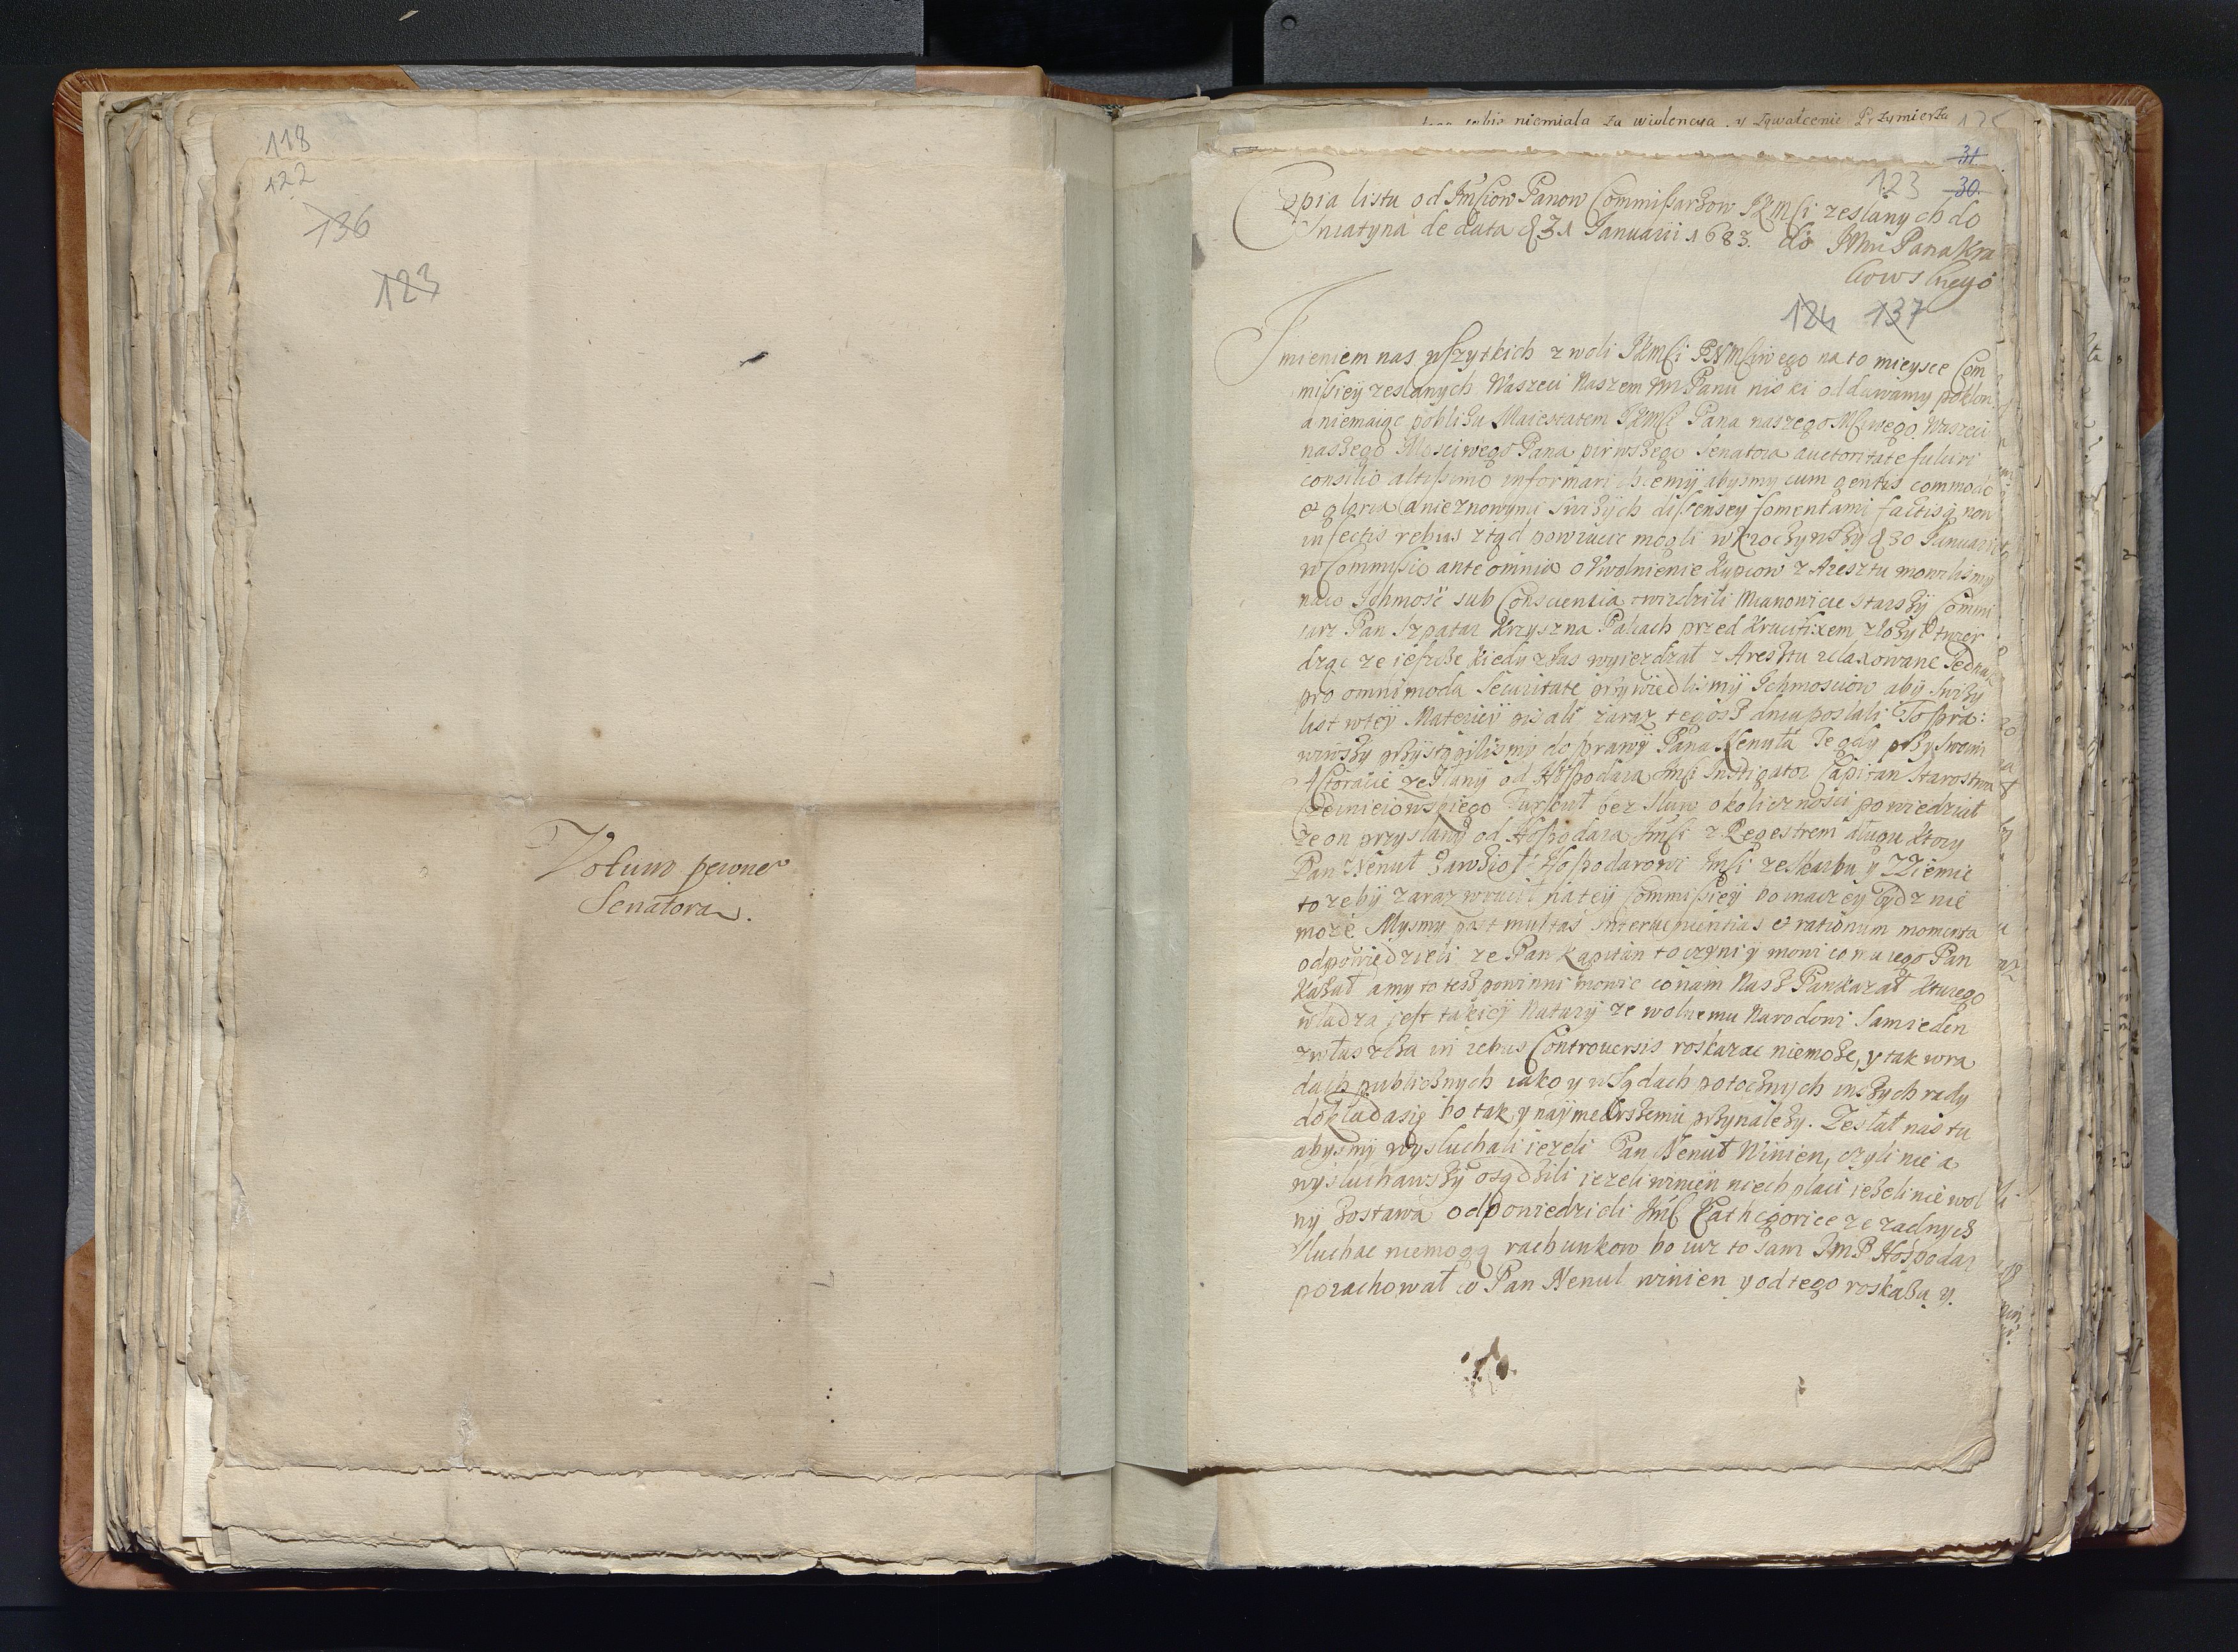 118
122
136
123
Votum pewne
Senatora.
niemiala za wiolencya y zgwałcenie Przymierza
31
123 30
Copia listu od Jmsciow Panow Commissarzow JKMsci zeslanych do
Sniatyna de data d 31 Januarii 1683. do JMci Pana Kra
kowskiego
124 137
Jmieniem nas wszytkich z woli JKMsci PNMsciwego na to mieysce Com
missiey zeslanych Waszeci Naszem Panu niski oddawamy poklon
a niemaiąc poblizu Maiestatem JKMsci Pana naszego Msciwego Waszeci
naszego Mosciwego Pana pirwszego Senatora auctoritate futuri
consilio altissimo informari chcemy abysmy cum gentis commodo
et gloria a nie znowymi dissensey fomentami factisq non
infectis rebus ztąd powrucic mogli wkroczywszy d 30 Januarii
w Commissio ante omnia o Vwolnienie Kupcow z Aresztu mowilismy
na co Jchmosc sub Conscientia twirdzili Mianowicie starszy Commi
sarz Pan Szpatar Krzyz na Palcach przed Krucifixem złozył twier
dząc ze ieszcze kiedy z Jas wyiezdzał z Aresztu relaxowane Jednak
pro omnimoda Securitate przywiedlismy Jchmosciow aby
list w tey Materiey pisali zaraz tegosz dnia poslali To spra:
wiwszy przystąpilismy do sprawy Pana Nenuła Tegdy przy swoim
Actoracie Zeslany od Hospodara Jmsci Instigator Capitan Starostwa
Czerniciowskiego Turkuł bez słuw okolicznosci powiedział
ze on przyslany od Hospodara Jmsci z Regestrem długu ktory
Pan Nenuł Hospodarowi Jmsci ze skarbu y Ziemie
to zeby zaraz wrucił na tey Commissiey bo inaczey bydz nie
może Mysmy post multas intervenientias et rationum momenta
odpowiedzieli ze Pan Kapitan to czyni y mowi co mu iego Pan
Kazał a my to tesz powinni mowic co nam Nasz Pan kazał kturego
władza jest takiey Natury ze wolnemu Narodowi Sam ieden
zwłaszcza in rebus Controversis roskazac niemoże, y tak w ra
dach publicznych iako y w Sądach potocznych inszych rady
dokłada się bo tak y naymędrszemu przynalezy. Zesłał nas tu
abysmy wysluchali iezeli Pan Nenuł Winien, czyli nie a
wysluchawszy osądzili iezeli winien niech placi iezeli nie wol
ny zostawa odpowiedzieli Jmsc Cathegorice ze zadnych
słuchac niemogą rachunkow bo iuz to sam JmP Hospodar
porachował co Pan Nenul winien y od tego roskazu y